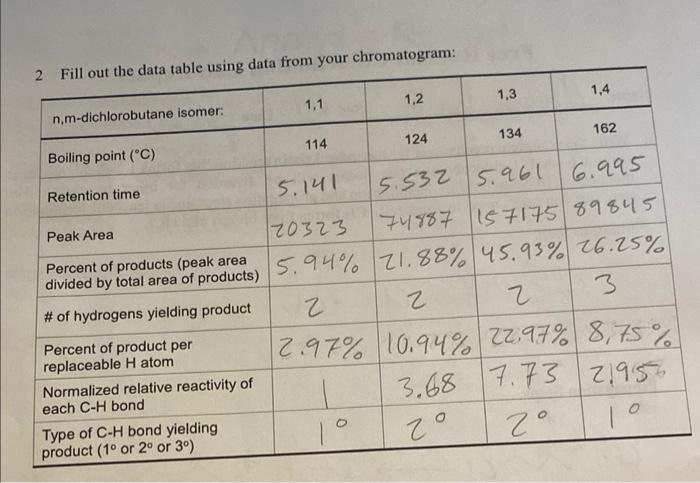 2 Fill out the data table using data from your chromatogram:
n,m-dichlorobutane isomer: 1,1 1,2 1,3 1,4
Boiling point (°C) 114 124 134 162
Retention time 5.141 5.532 5.961 6.995
Peak Area 20323 74887 157175 89845
Percent of products (peak area
divided by total area of products) 5.94% 21.88% 45.93% 26.25%
# of hydrogens yielding product 2 2 2 3
Percent of product per
replaceable H atom 2.97% 10.94% 22.97% 8,75%
Normalized relative reactivity of
each C-H bond 1 3.68 7.73 2.95
Type of C-H bond yielding
product (1º or 2º or 3º) 1° 2° 2° 1°